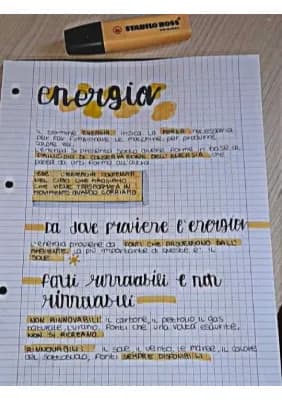 STABILO BOSS
energia
IL termine ENERGIA indica LA FORZA necessaria
per far funzionare le macchine, per produrre
calore ecc.
L'energia si presenta sotto diverse forme in base al
PRINCIPIO DI CONSERVAZIONE DELL'ENERGIA, che
passa da una forma all'altra.
ESE: L'ENERGIA CONTENUTA
NEL CIBO CHE MANGIAMO
CHE VIENE TRASFORMATA IN
MOVIMENTO QUANDO CORRIAMO
Da dove proviene l'energia
L'energia proviene da FONTI CHE PROVENGONO DALL'
AMBIENTE. La più importante di queste è il
SOLE
Fonti rinnovabili e non
rinnovabili
NON RINNOVABILI: il carbone, il petrolio, il gas
naturale, l'uranio. Fonti che una volta esaurite,
NON SI RICREANO.
RINNOVABILI: il sole, il vento, le maree, il calore
del sottosuolo, fonti SEMPRE DISPONIBILI